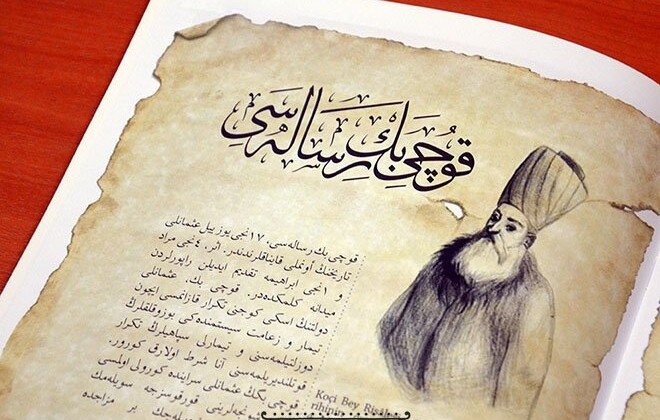 قوچی بك رساله سی
قوچی بك رساله سی. ١٧ نجی یوز ییل عثمانلی
تاریخنك اونملی قایناقلرندندر. اثر، ٤ نجی مراد
و ١ نجی ابراهیمه تقدیم ایدیلن راپورلردن
میدانه كلمكده‌در. قوچی بك، عثمانلی
دولتنك اسكی كوجنی تكرار قازانمسی ایچون
تیمار و زعامت سیستمنده‌كی بوزوقلقلرك
دوزلتیلمه‌سنی و تیمارلی سپاهیلرك تكرار
قوتلندیریلمه‌سنی آنا شرط اولارق كورور.
قوچی بكك عثمانلی سراینده كورولی اولمسی
قورقوسزجه سویله‌مك
بر مزاجده
Koçi Bey Risâl